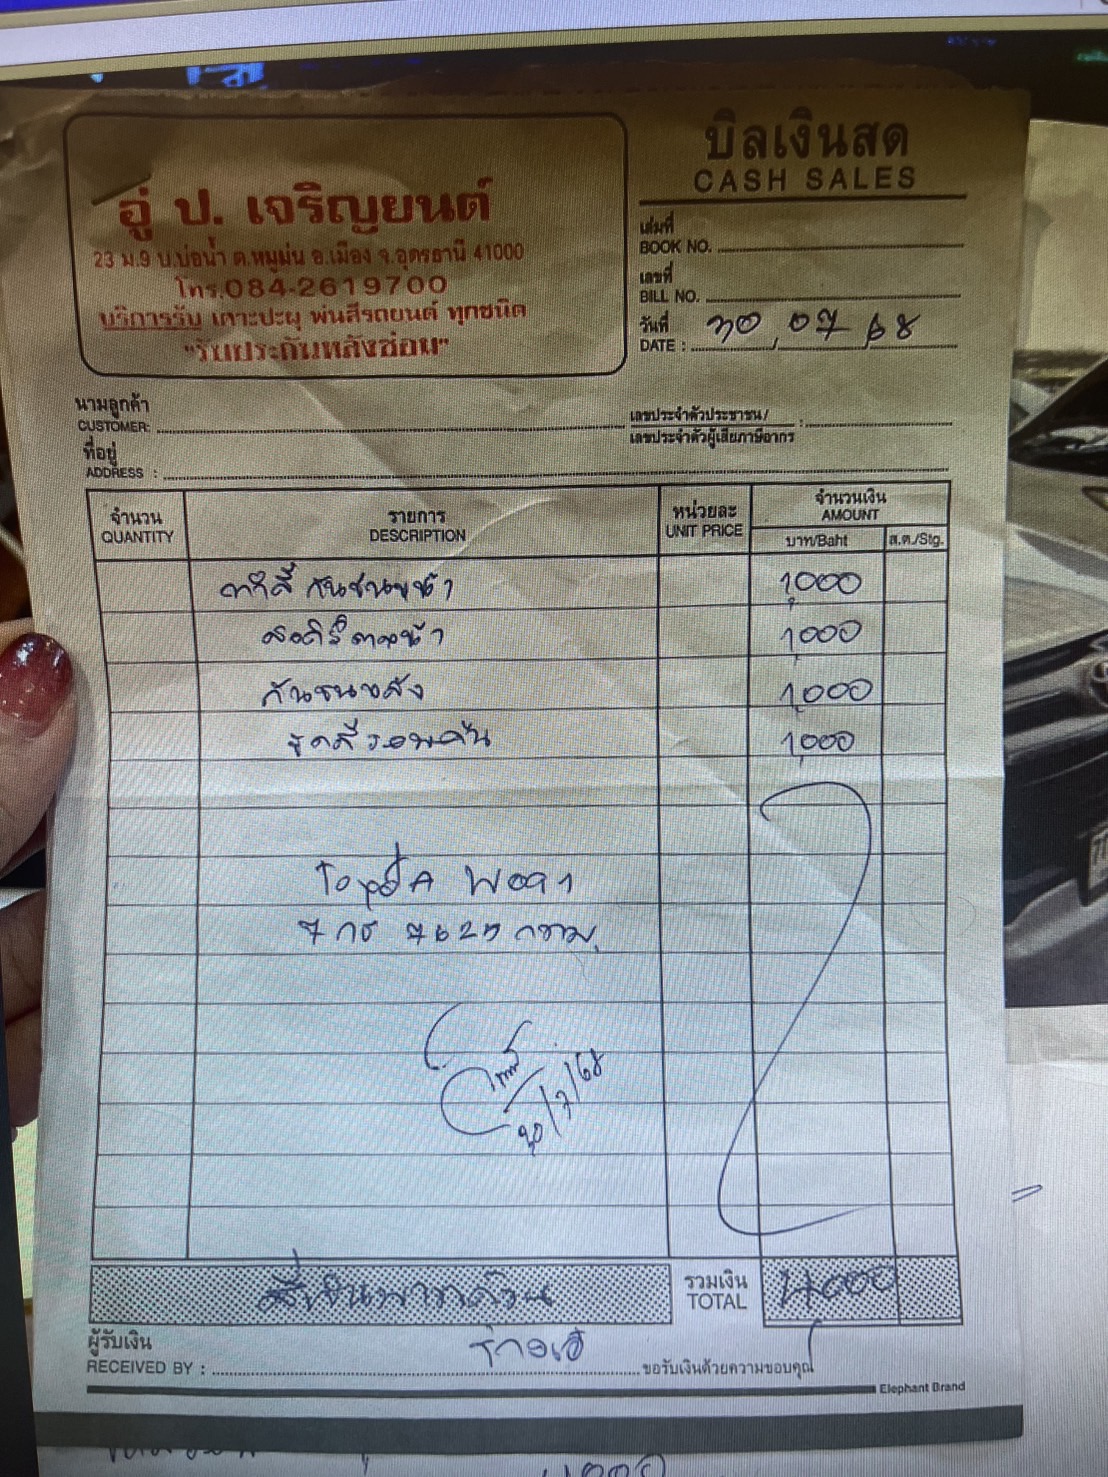 บิลเงินสด
CASH SALES
อู่ ป. เจริญยนต์
23 ม.9 บ.บ่อน้ำ ต.หมูม่น อ.เมือง จ.อุดรธานี 41000
โทร.084-2619700
บริการรับ เคาะปะผุ พ่นสีรถยนต์ ทุกชนิด
"รับประกันหลังซ่อม"
เล่มที่
BOOK NO.
เลขที่
BILL NO.
วันที่
DATE : 30 / 07 / 68
นามลูกค้า
CUSTOMER:
เลขประจำตัวประชาชน/
เลขประจำตัวผู้เสียภาษีอากร :
ที่อยู่
ADDRESS :
จำนวน
QUANTITY
รายการ
DESCRIPTION
หน่วยละ
UNIT PRICE
จำนวนเงิน
AMOUNT
บาท/Baht
ส.ต./Stg.
ทำสี กันชนหน้า 1,000
1,000
กันชนหลัง 1,000
ขัดสีรอบคัน 1,000
7 กธ 7625 กทม.
30/7/68
สี่พันบาทถ้วน
รวมเงิน
TOTAL 4000
ผู้รับเงิน
RECEIVED BY :
ขอรับเงินด้วยความขอบคุณ
Elephant Brand